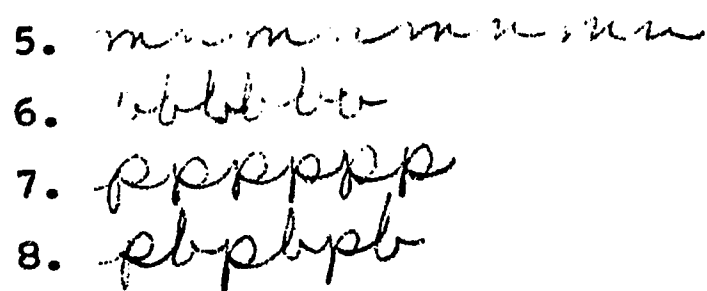 5. mnmnmnmn
6. bbbbb
7. pppppp
8. pbpbpb